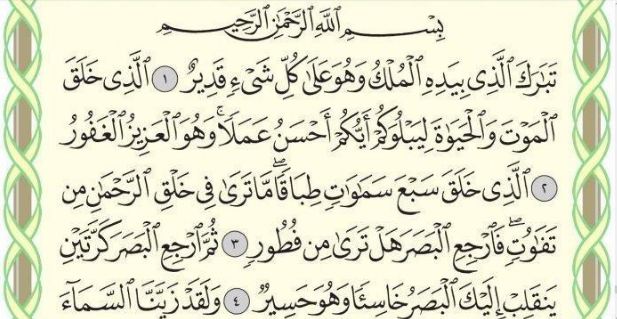 بِسْمِ اللَّهِ الرَّحْمَٰنِ الرَّحِيمِ
تَبَارَكَ الَّذِي بِيَدِهِ الْمُلْكُ وَهُوَ عَلَىٰ كُلِّ شَيْءٍ قَدِيرٌ ١ الَّذِي خَلَقَ
الْمَوْتَ وَالْحَيَوٰةَ لِيَبْلُوَكُمْ أَيُّكُمْ أَحْسَنُ عَمَلًا ۚ وَهُوَ الْعَزِيزُ الْغَفُورُ
٢ الَّذِي خَلَقَ سَبْعَ سَمَاوَاتٍ طِبَاقًا ۖ مَّا تَرَىٰ فِي خَلْقِ الرَّحْمَٰنِ مِن
تَفَاوُتٍ ۖ فَارْجِعِ الْبَصَرَ هَلْ تَرَىٰ مِن فُطُورٍ ٣ ثُمَّ ارْجِعِ الْبَصَرَ كَرَّتَيْنِ
يَنقَلِبْ إِلَيْكَ الْبَصَرُ خَاسِئًا وَهُوَ حَسِيرٌ ٤ وَلَقَدْ زَيَّنَّا السَّمَاءَ